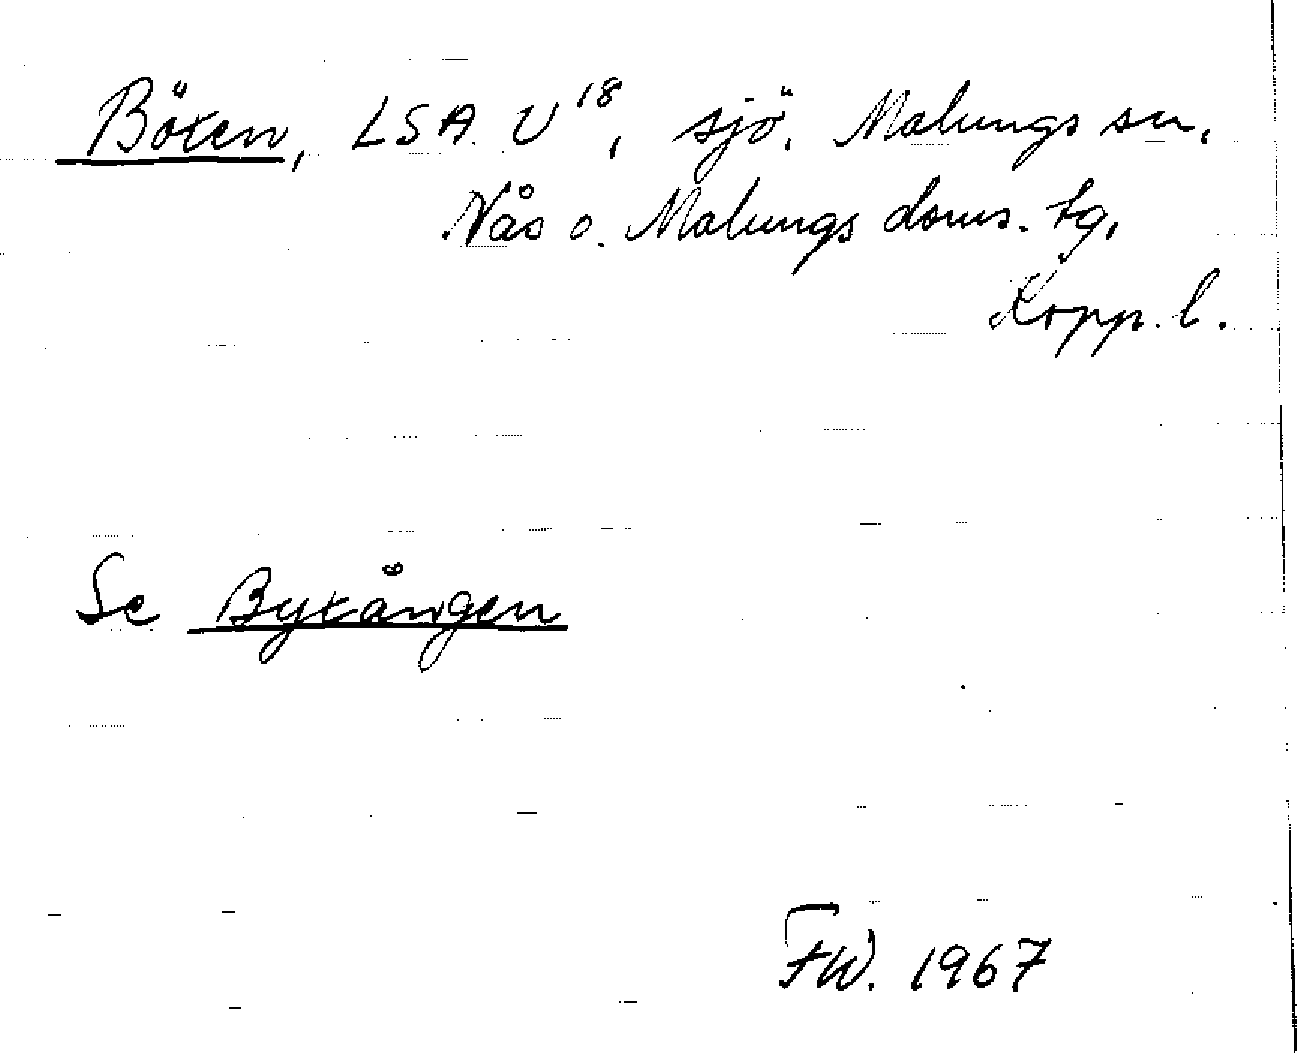 Böxen, LSA U18, sjö. Malungs sn,
Nås o. Malungs doms. tg,
Kopp. l.
Se Byxången
FW. 1967